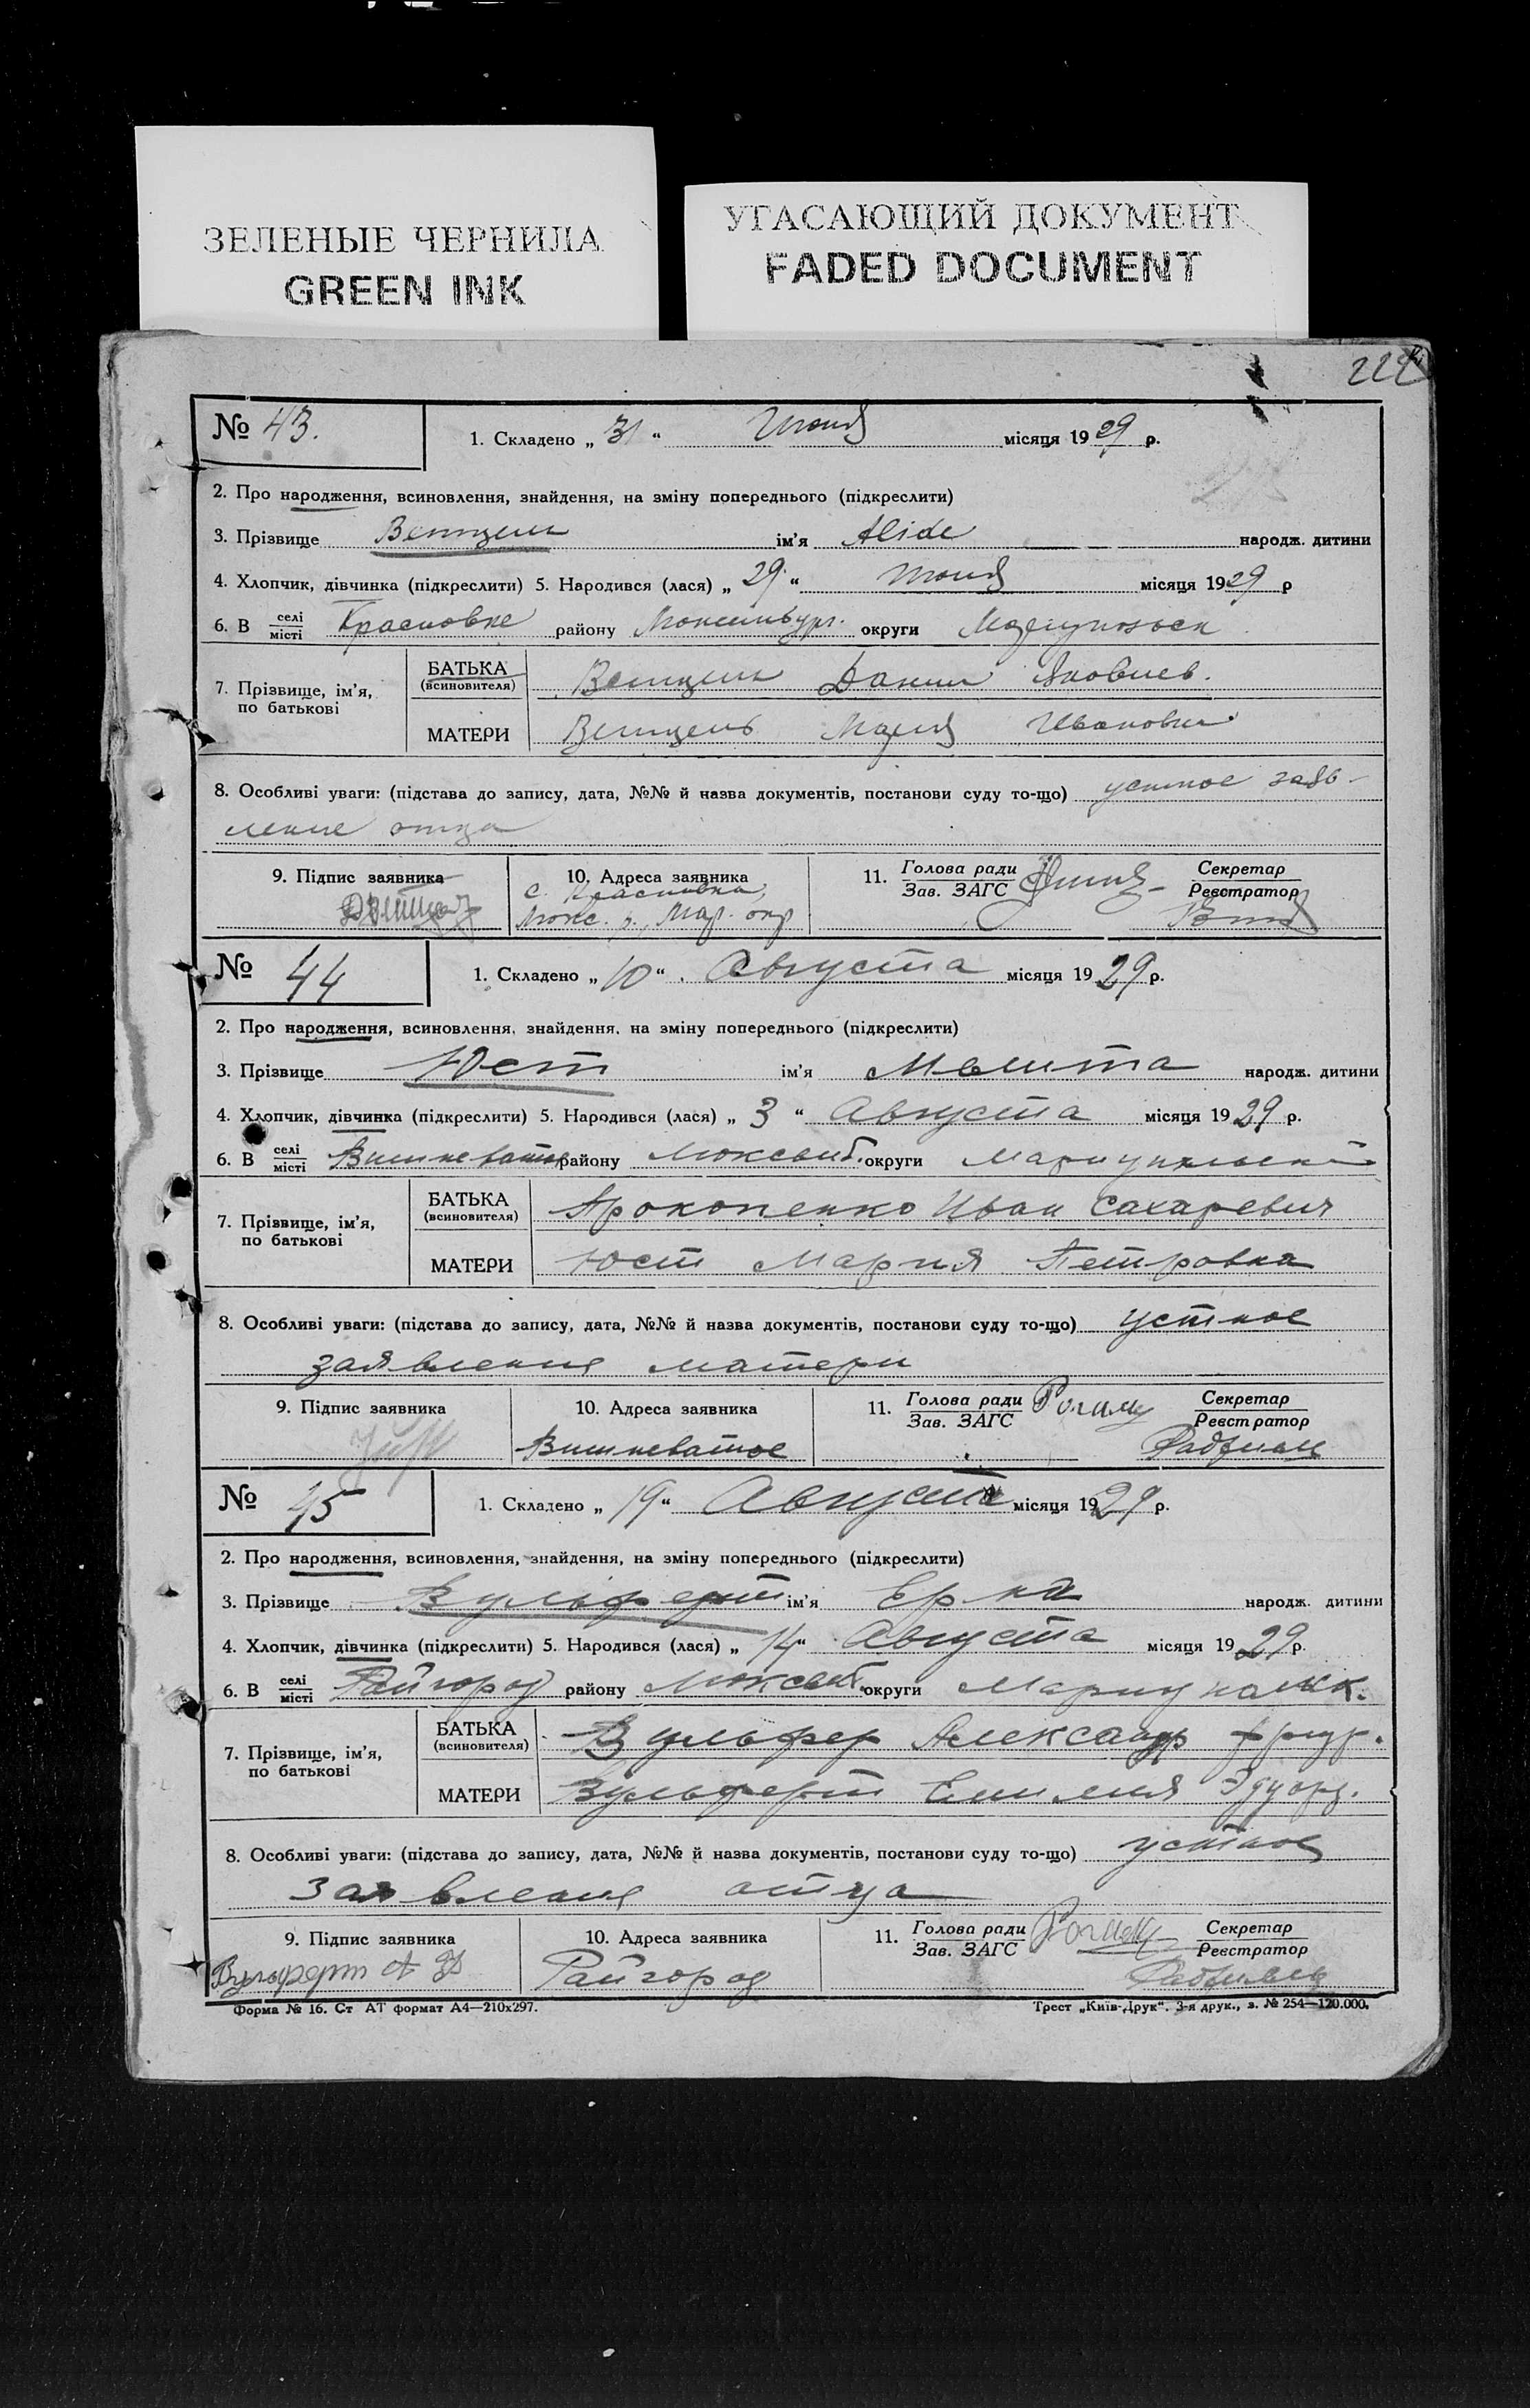 ЗЕЛЕНЫЕ ЧЕРНИЛА
GREEN INK
УГАСАЮЩИЙ ДОКУМЕНТ
FADED DOCUMENT
№ 43. 1. Складено „ 31 “ місяця 1929 р.
2. Про народження, всиновлення, знайдення, на зміну попереднього (підкреслити)
3. Прізвище Венцель ім’я Alide народж. дитини
4. Хлопчик, дівчинка (підкреслити) 5. Народився (лася) „ 29 “ місяця 1929 р
6. В селі/місті Красновке району округи
7. Прізвище, ім’я, по батькові
БАТЬКА (всиновителя) Венцель Данил Яковлев.
МАТЕРИ Венцель Мария Ивановна
8. Особливі уваги: (підстава до запису, дата, №№ й назва документів, постанови суду то-що) устное заяв-
ление отца
9. Підпис заявника 10. Адреса заявника 11. Голова ради/Зав. ЗАГС Секретар/Реєстратор
с. Красновка,
Люкс. р., Мар. окр
№ 44 1. Складено „ 10 “ Августа місяця 1929 р.
2. Про народження, всиновлення, знайдення, на зміну попереднього (підкреслити)
3. Прізвище Юст ім’я народж. дитини
4. Хлопчик, дівчинка (підкреслити) 5. Народився (лася) „ 3 “ Августа місяця 1929 р.
6. В селі/місті Вишневатое району Люксемб. округи Мариупольской
7. Прізвище, ім’я, по батькові
БАТЬКА (всиновителя) Прокопенко Иван Сахаревич
МАТЕРИ Юст Мария Петровна
8. Особливі уваги: (підстава до запису, дата, №№ й назва документів, постанови суду то-що) устное
заявления матери
9. Підпис заявника 10. Адреса заявника 11. Голова ради/Зав. ЗАГС Секретар/Реєстратор
Just Вишневатое
№ 45 1. Складено „ 19 “ Августа місяця 1929 р.
2. Про народження, всиновлення, знайдення, на зміну попереднього (підкреслити)
3. Прізвище Вульферт ім’я Ерна народж. дитини
4. Хлопчик, дівчинка (підкреслити) 5. Народився (лася) „ 14 “ Августа місяця 1929 р.
6. В селі/місті Райгород району Люксемб. округи
7. Прізвище, ім’я, по батькові
БАТЬКА (всиновителя) Вульфер Александр
МАТЕРИ Вульферт Емилия Эдуард.
8. Особливі уваги: (підстава до запису, дата, №№ й назва документів, постанови суду то-що) устное
заявления отца
9. Підпис заявника 10. Адреса заявника 11. Голова ради/Зав. ЗАГС Секретар/Реєстратор
Вульферт А Ф Райгород
Форма № 16. Ст АТ формат А4—210х297. Трест „Київ-Друк“. 3-я друк., з. № 254—120.000.